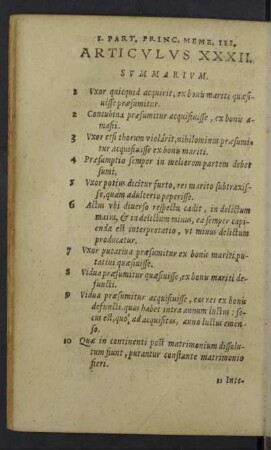 I. PART. PRINC. MEMB. III.
ARTICVLVS XXXII.
SVMMARIVM.
1 Vxor quicquid acquirit, ex bonis mariti quæsi-
uisse præsumitur.
2 Concubina præsumitur acquisiuisse, ex bonis a-
masii.
3 Vxor etsi thorum violârit, nihilominus præsumi-
tur acquisiuisse ex bonis mariti.
4 Præsumptio semper in meliorem partem debet
sumi.
5 Vxor potius dicitur furto, res marito subtraxis-
se, quam adulterio peperisse.
6 Actus vbi diuerso respectu cadit, in delictum
maius, & in delictum minus, ea semper capi-
enda est interpretatio, vt minus delictum
producatur.
7 Vxor putatiua præsumitur ex bonis mariti pu-
tatiui quæsiuisse.
8 Vidua præsumitur quæsiuisse, ex bonis mariti de-
functi.
9 Vidua præsumitur acquisiuisse, eas res ex bonis
defuncti, quas habet intra annum luctus: se-
cus est, quo ad acquisitas, anno luctus emen-
so.
10 Quæ in continenti post matrimonium dissolu-
tum fiunt, putantur constante matrimonio
fieri.
11 Inte-